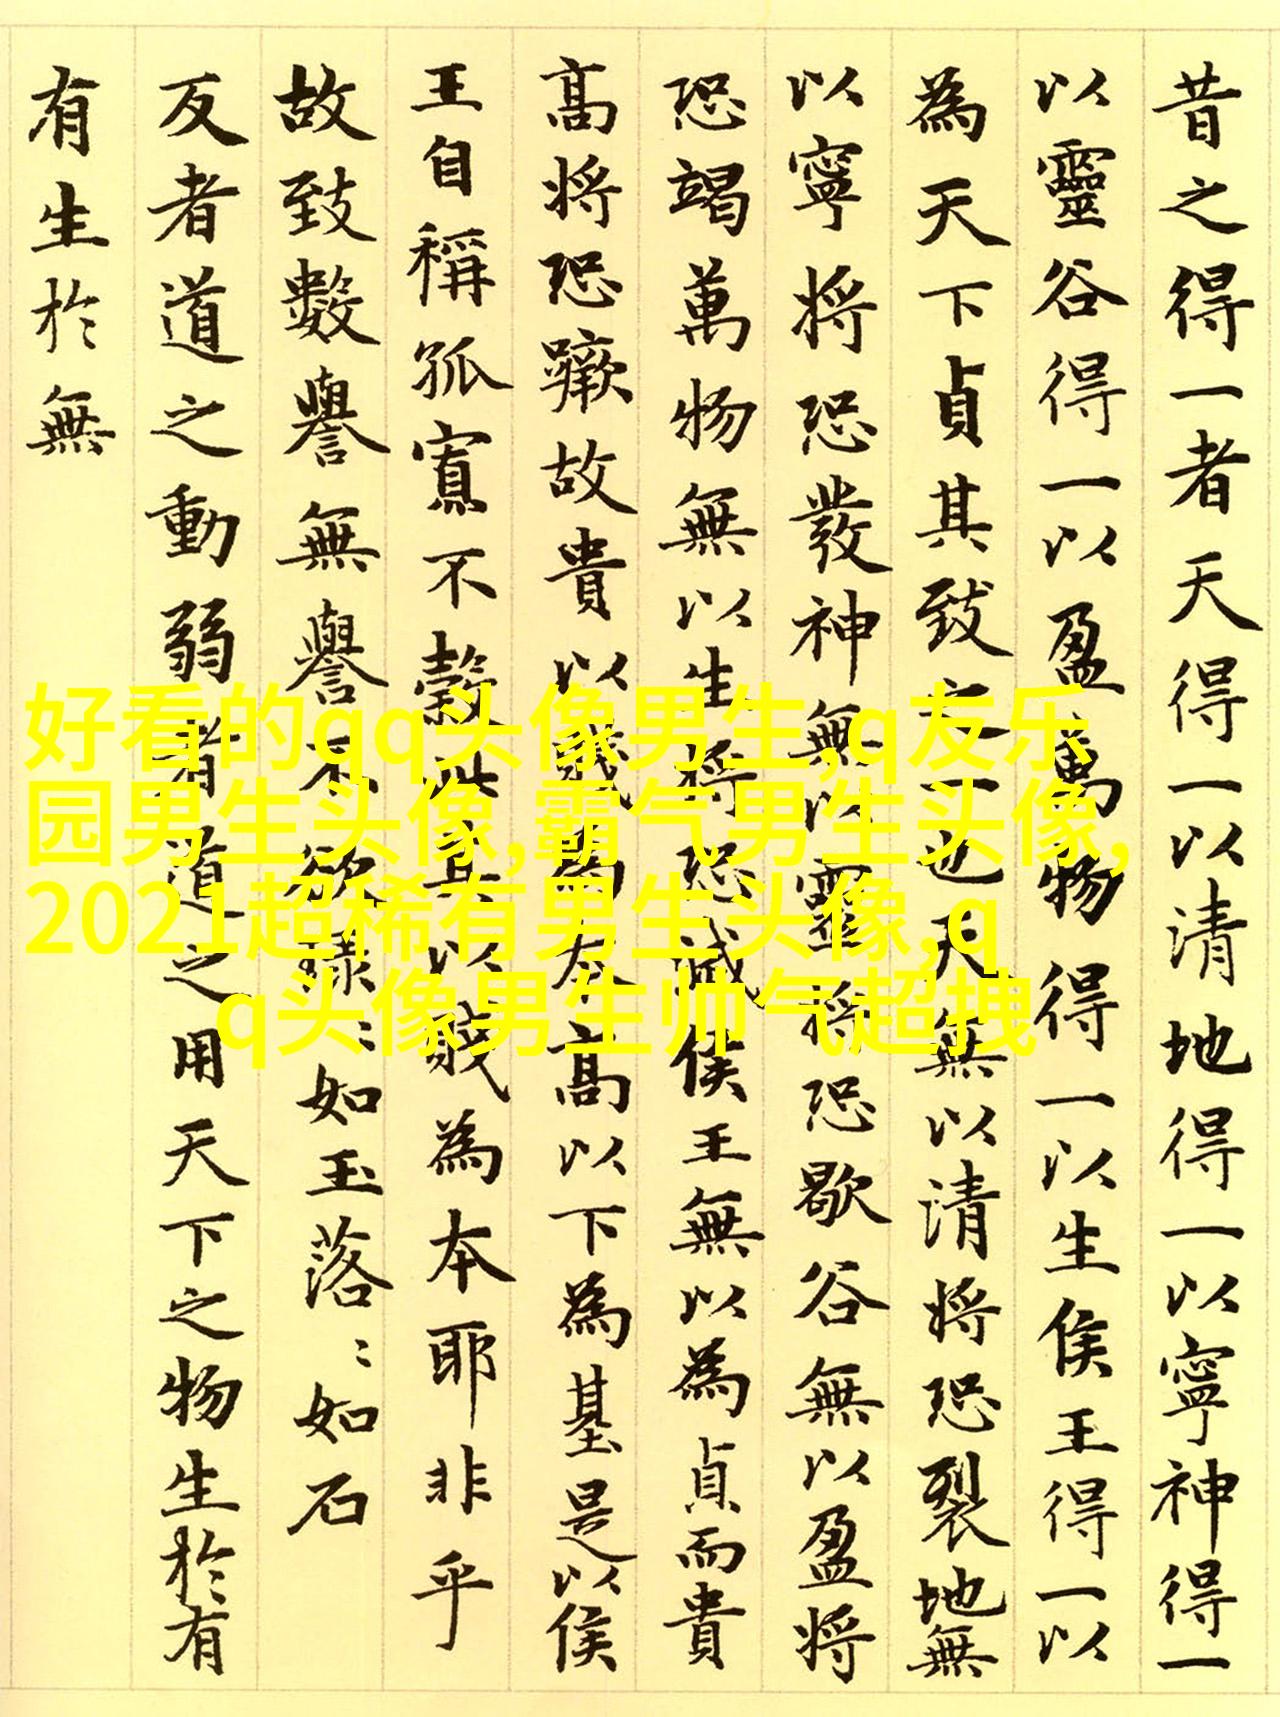 昔之得一者天得一以清地得一以寧神得一
以靈谷得一以盈萬物得一以生侯王得一以
為天下貞其致之一也天無以清將恐裂地無
以寧將恐發神無以靈將恐歇谷無以盈將
恐竭萬物無以生將恐滅侯王無以為貞而貴
高將恐蹶故貴以賤為本高以下為基是以侯
王自稱孤寡不穀此其以賤為本耶非乎
故致數譽無譽不欲琭〻如玉落〻如石
反者道之動弱者道之用天下之物生於有
有生於無
好看的qq头像男生,q友乐
园男生头像,霸气男生头像,
2021超稀有男生头像,q
q头像男生帅气超拽